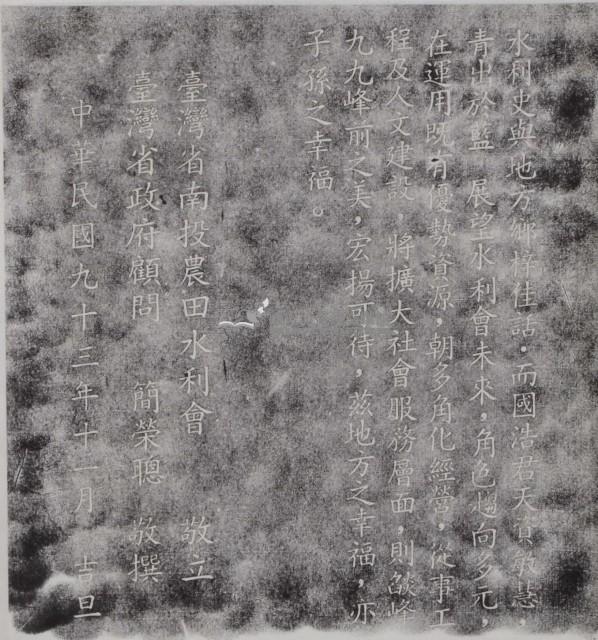 水利史與地方鄉梓佳話。而國浩君天資敏慧，
青出於藍，展望水利會未來，角色趨向多元，
在運用既有優勢資源，朝多角化經營，從事工
程及人文建設，將擴大社會服務層面，則燄峰
九九峰前之美，宏揚可待，茲地方之幸福，亦
子孫之幸福。
臺灣省南投農田水利會　敬立
臺灣省政府顧問　簡榮聰　敬撰
中華民國九十三年十一月　吉旦